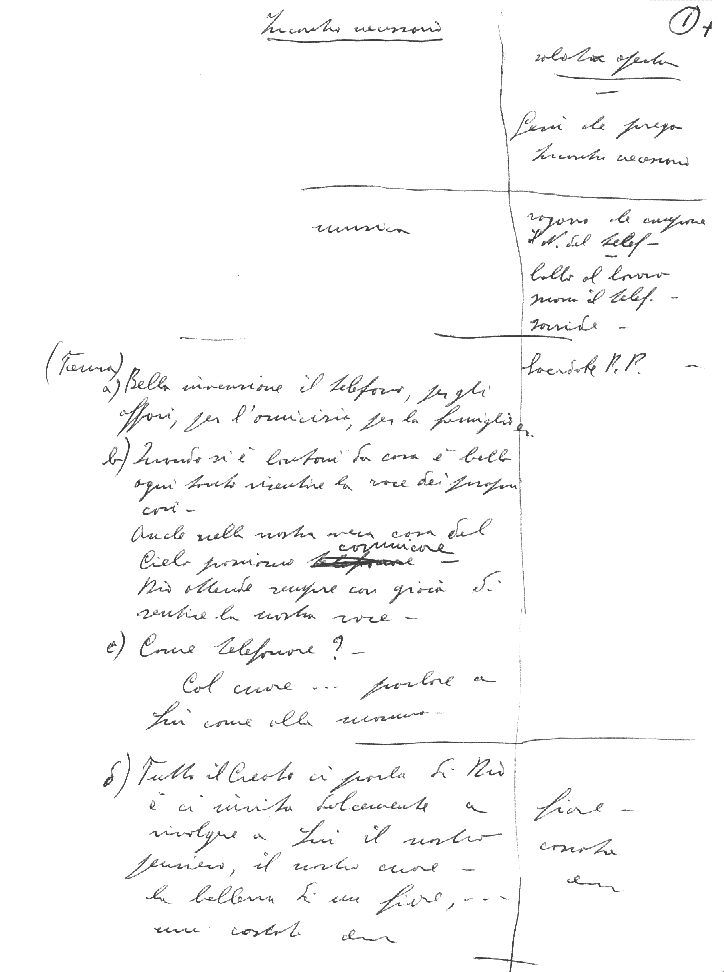 Incontro necessario
1
Gesù che prega
Incontro necessario
musica
ragazzo che
il N. del telef -
il telef. -
sorride -
Sacerdote P. P. -
a) Bella invenzione il telefono, per gli
affari, per l'amicizia, per la famiglia
b) Quando si è lontani da casa è bello
ogni tanto risentire la voce dei propri
cari -
Anche nella nostra vera casa del
Cielo possiamo comunicare -
Dio attende sempre con gioia di
sentire la nostra voce -
c) Come telefonare? -
Col cuore ... parlare a
Lui come alla mamma
d) Tutto il Creato ci parla di Dio
e ci invita dolcemente a
rivolgere a Lui il nostro
pensiero, il nostro cuore -
la bellezza di un fiore, ...
una cascata
fiore -
cascata